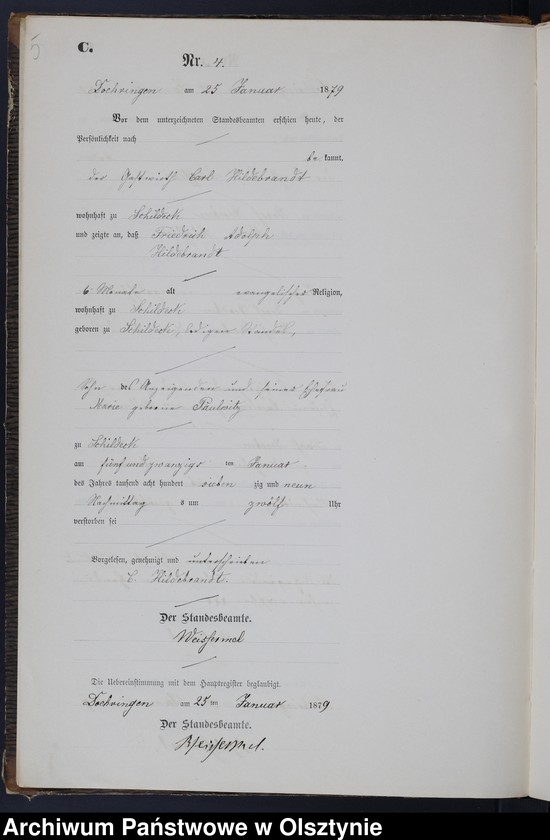 5
C.
Nr. 4.
Doehringen am 25 Januar 1879
Vor dem unterzeichneten Standesbeamten erschien heute, der
Persönlichkeit nach
be kannt,
der Gastwirth Carl Hildebrandt
wohnhaft zu Schildeck
und zeigte an, daß Friedrich Adolph
Hildebrandt
6 Monate alt evangelischer Religion,
wohnhaft zu Schildeck
geboren zu Schildeck, ledigen Standes,
Sohn des Anzeigenden und seiner Ehefrau
Marie geborne
zu Schildeck
am fünfundzwanzigs ten Januar
des Jahres tausend acht hundert sieben zig und neun
Nachmittag s um zwölf Uhr
verstorben sei
Vorgelesen, genehmigt und unterschrieben
C. Hildebrandt.
Der Standesbeamte.
Weissermel
Die Uebereinstimmung mit dem Hauptregister beglaubigt
Doehringen am 25 ten Januar 1879
Der Standesbeamte.
Weissermel.
Archiwum Państwowe w Olsztynie